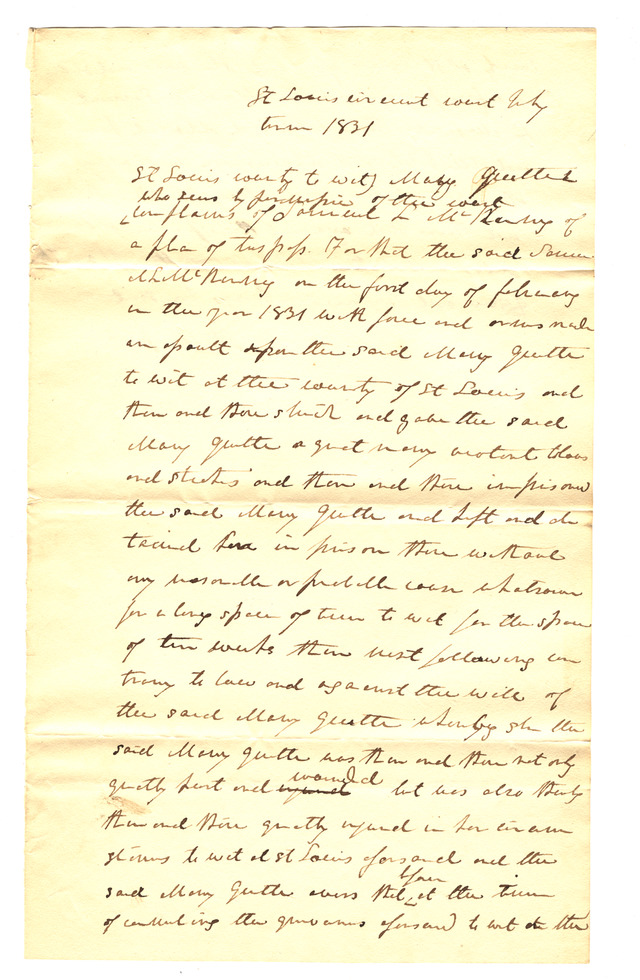 St Louis circuit court July
term 1831
St Louis county to wit) Mary Guette
who sues by permission of the court
complains of Samuel L McKenney of
a plea of tresps. For that the said Samu-
el McKenney on the first day of february
in the year 1831 with force and arms made
an assault upon the said Mary Guette
to wit at the county of St Louis and
then and there struck and gave the said
Mary Guette a great many violent blows
and strokes and then and there imprisoned
the said Mary Guette and kept and de
tained her in prison there without
any reasonable or probable cause whatsoever
for a long space of time to wit for the space
of ten weeks then next following con
trary to law and against the will of
the said Mary Guette whereby she the
said Mary Guette was then and there not only
greatly hurt and injured wounded but was also thereby
then and there greatly injured in her circum
stances to wit at St Louis aforesaid and the
said Mary Guette avers that before at the time
of committing the grievances aforesaid to wit on the